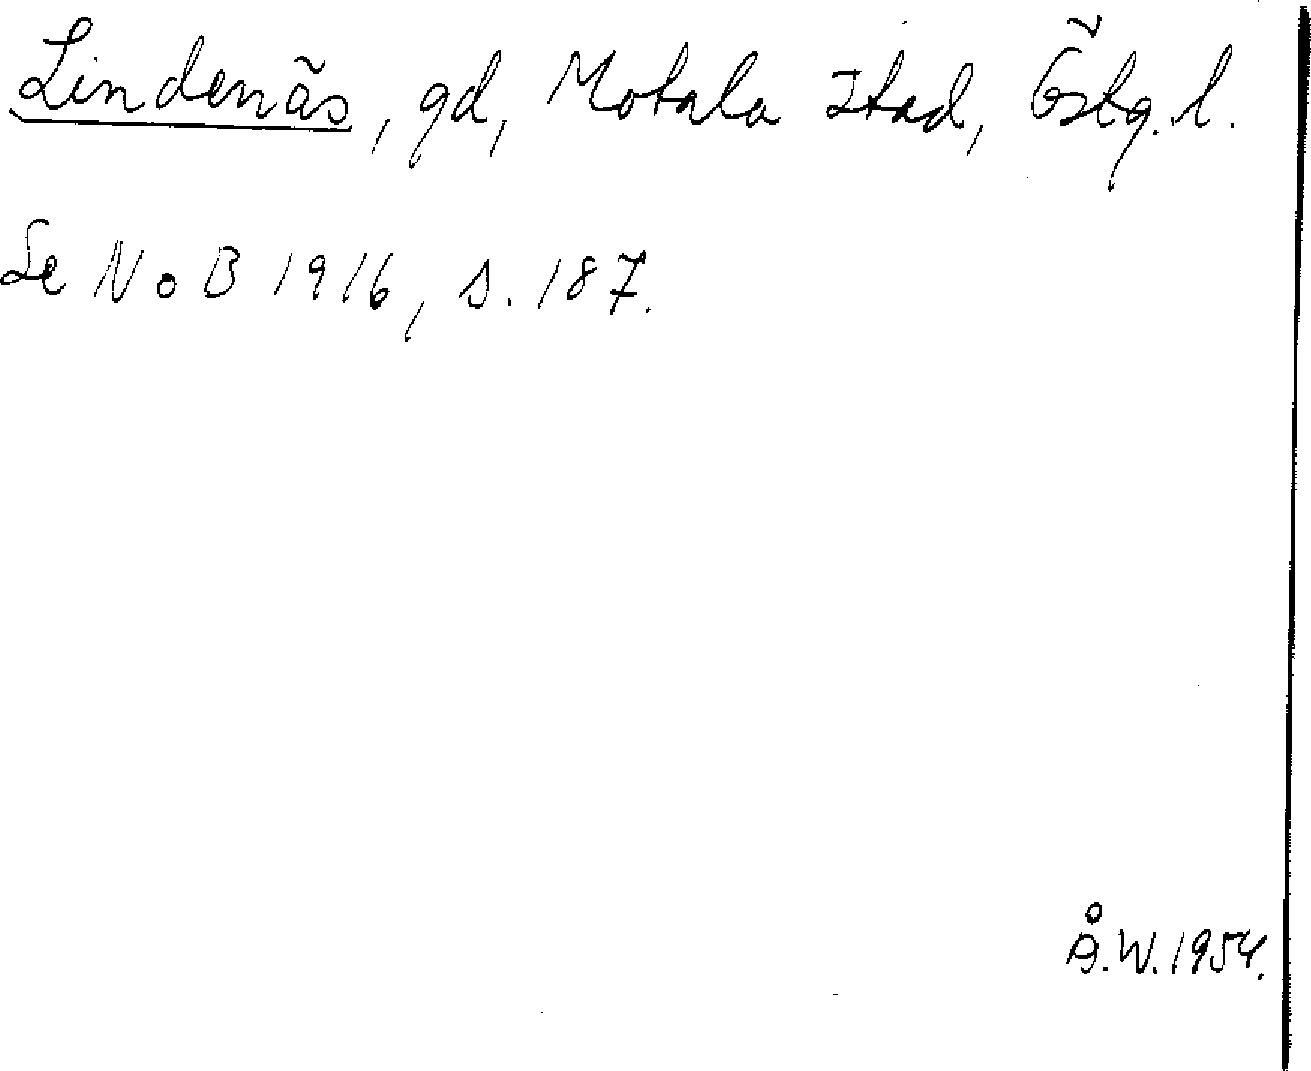 Lindenäs, gd, Motala stad, Östg. l.
Se NoB 1916, s. 187.
Å.W. 1954.